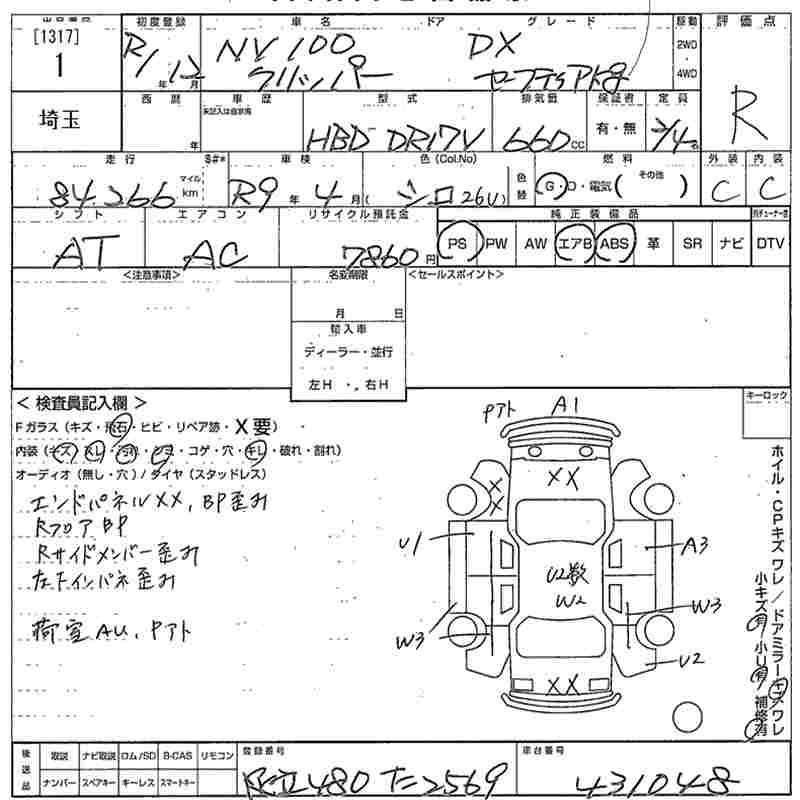 [1317] 初度登録 車名 ドア グレード 駆動 評価点
1 R1/12 年 月 NV100 クリッパー DX セーフティアP付 2WD 4WD R
埼玉 西暦 年 車歴 未記入は自家用 型式 HBD DR17V 排気量 660 cc 保証書 有・無 定員 2/4名
走行 84,266 マイル km S#* 車検 R9年4月 色(Col.No) シロ 26U 色替 燃料 G・D・電気( その他 ) 外装 C 内装 C
シフト AT エアコン AC リサイクル預託金 7860円 純正装備品 PS PW AW エアB ABS 革 SR ナビ DTV
<注意事項> 名変期限 月 日 <セールスポイント>
輸入車
ディーラー・並行
左H ・ 右H
<検査員記入欄> キーロック
Fガラス(キズ・飛石・ヒビ・リペア跡・X要)
内装(キズ・スレ・汚れ・シミ・コゲ・穴・キレ・破れ・割れ)
オーディオ(無し・穴)/タイヤ(スタッドレス)
エンドパネルXX, BP歪み
RフロアBP
Rサイドメンバー歪み
左下インパネ歪み
荷室AU, Pアト
Pアト A1
XX
X
X
U1 A3
U2数
W2
W3 W3
U2
XX
ホイル・CPキズ ワレ/ドアミラーキズワレ
小キズ有 小U有 補修有
後送品 取説 ナビ取説 ロム/SD B-CAS リモコン 登録番号 車台番号
ナンバー スペアキー キーレス スマートキー 足立480 た2569 431048